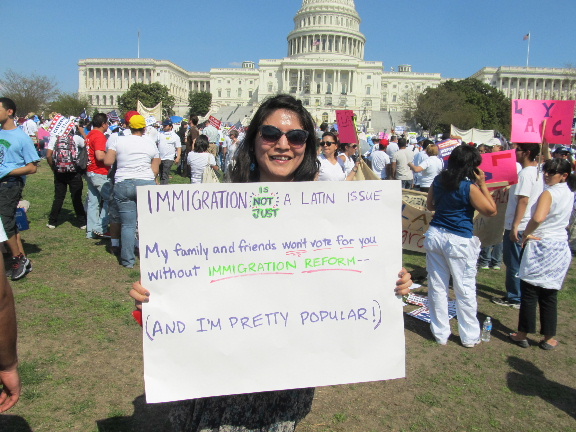 IMMIGRATION IS NOT JUST A LATIN ISSUE
My family and friends won't vote for you
without IMMIGRATION REFORM--
(AND I'M PRETTY POPULAR!)
LYAC